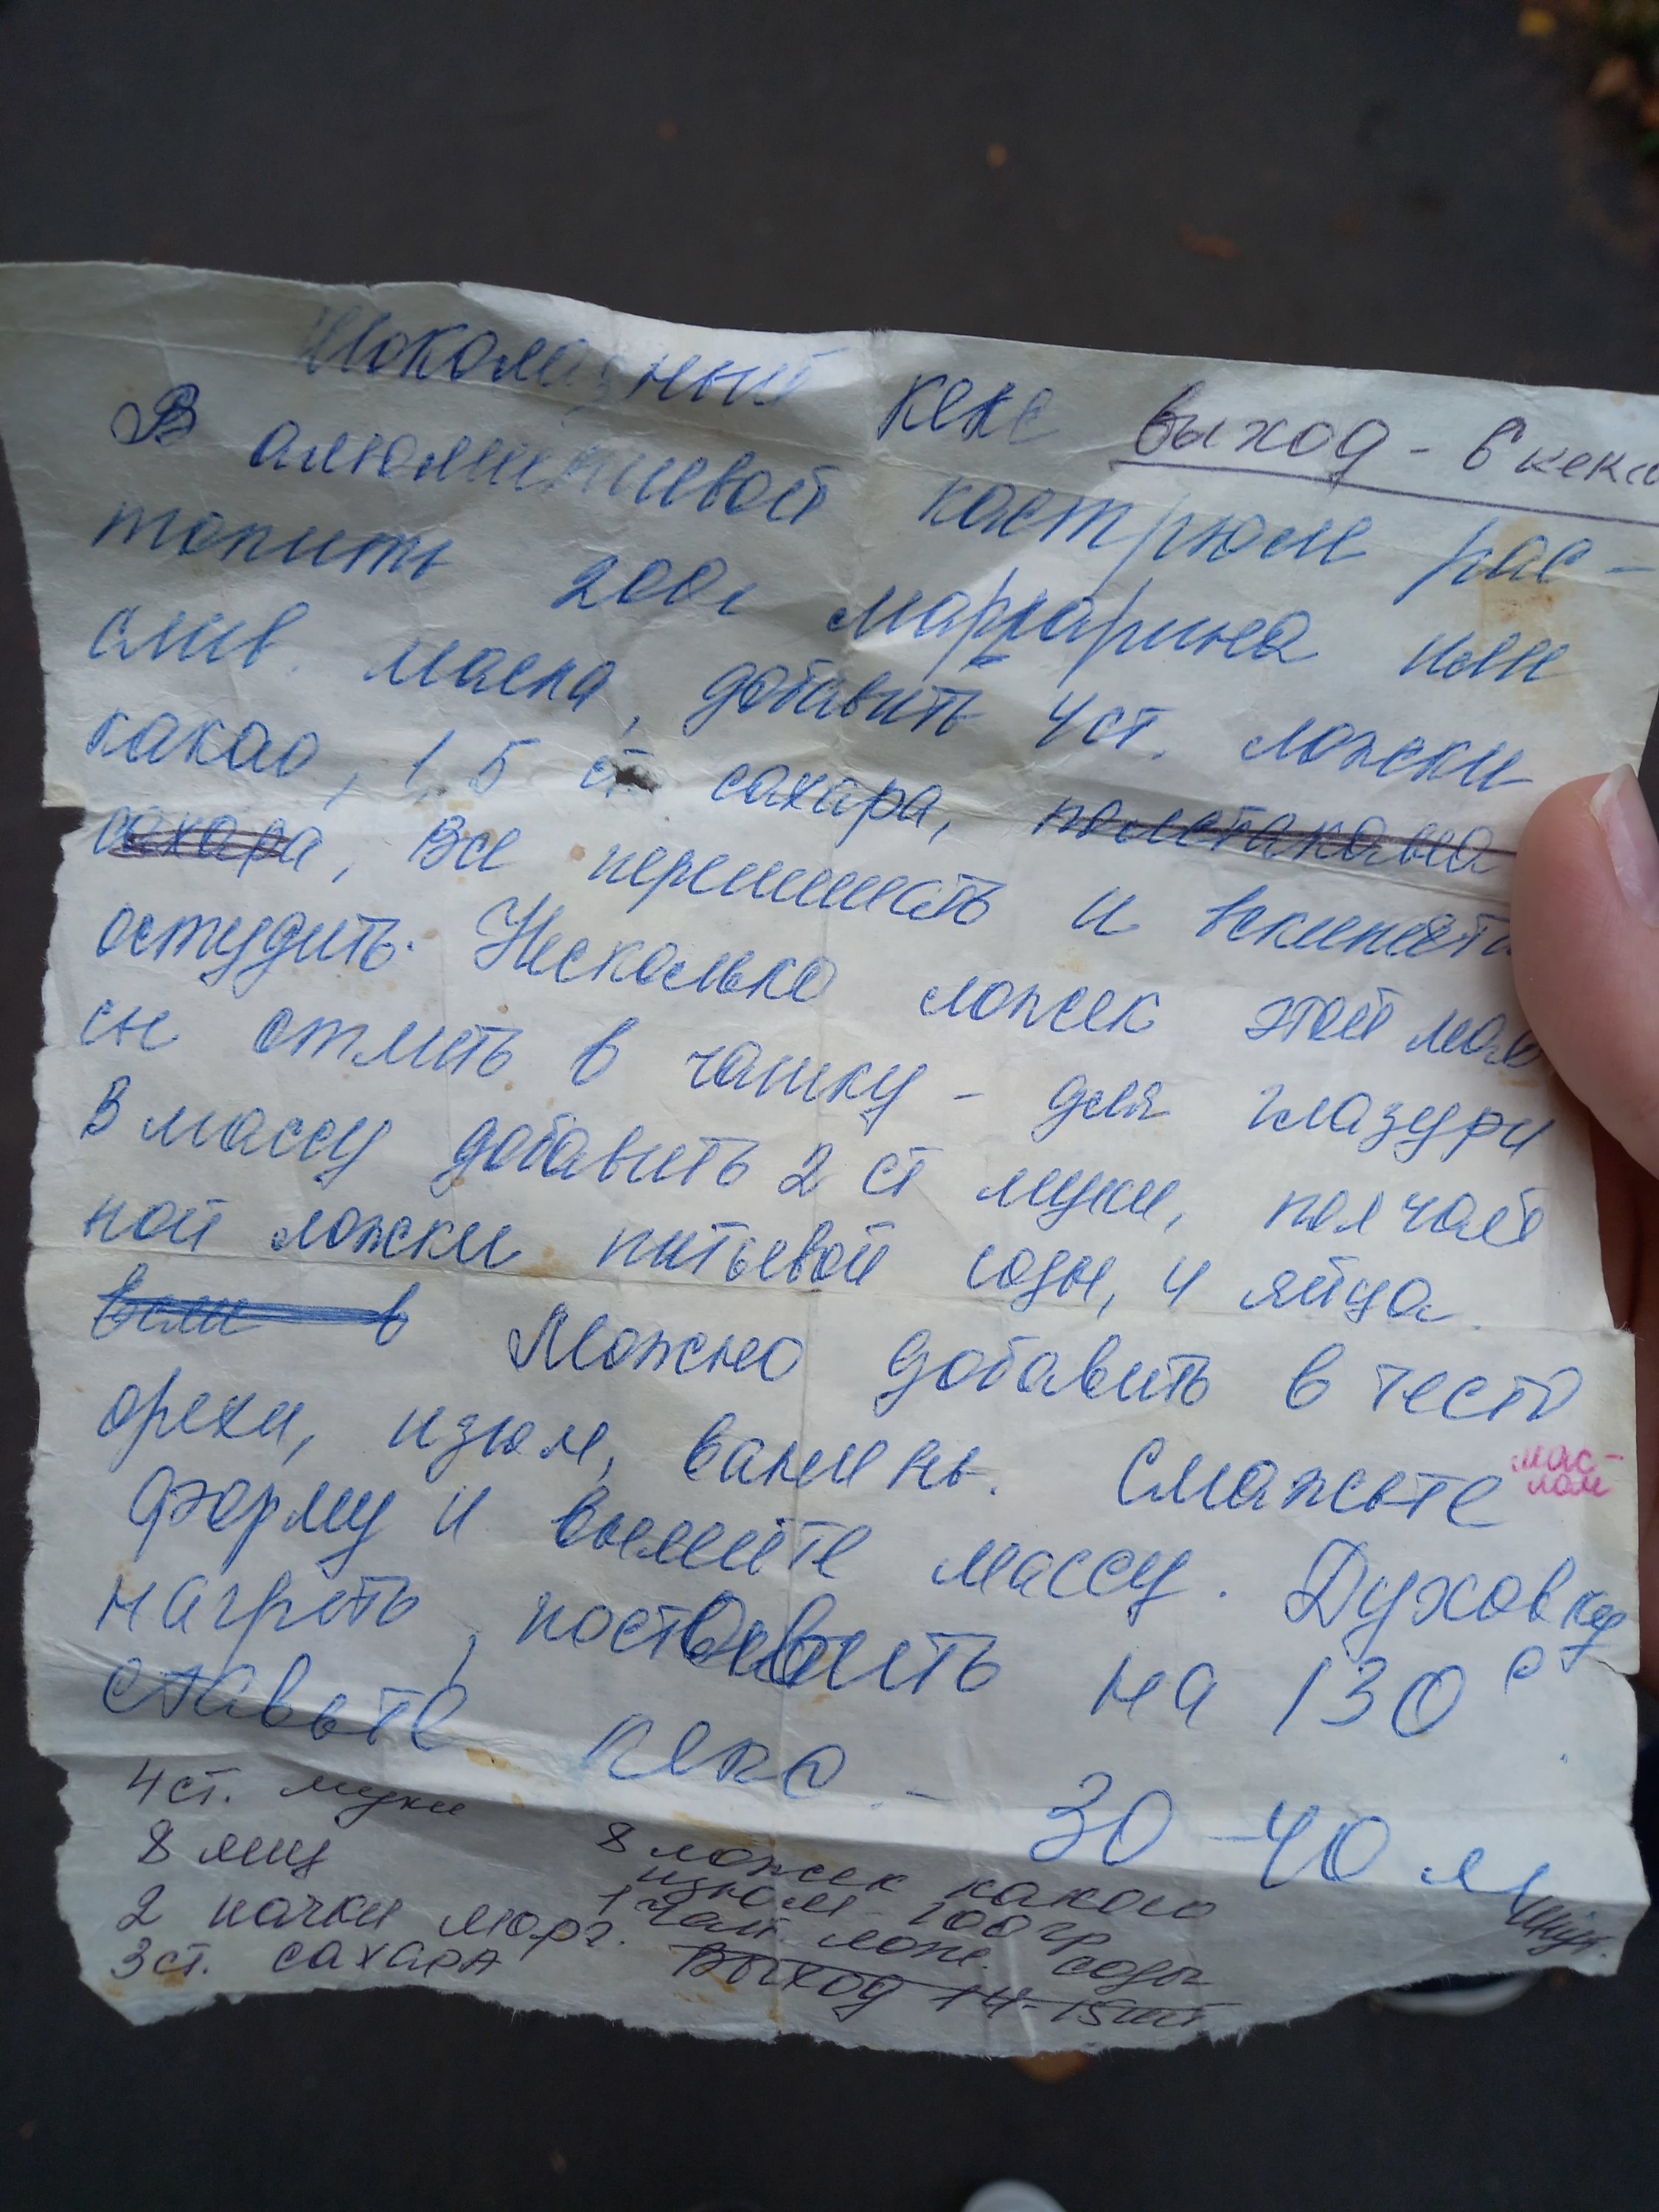 Шоколадный кекс выход - 6 кекс
В алюминиевой кастрюле рас-
топить 200г маргарина или
слив. масла, добавить 4 ст. ложки
какао, 1,5 ст сахара, полстакана
сахара, Все перемешать и вскипяти
остудить. Несколько ложек этой мас
сы отлить в чашку - для глазури
В массу добавить 2 ст муки, пол чай
ной ложки питьевой соды, 4 яйца.
в Можно добавить в тесто
орехи, изюм, ваниль. Смажьте мас-
лом
форму и вылейте массу. Духовку
нагреть, поставить на 130°
ставьте кекс - 30-40 минут.
4 ст. муки
8 яиц
2 пачки марг.
3 ст. сахара
8 ложек какао
изюм - 100 гр
1 чай. лож. соды
Выход 14-15 шт